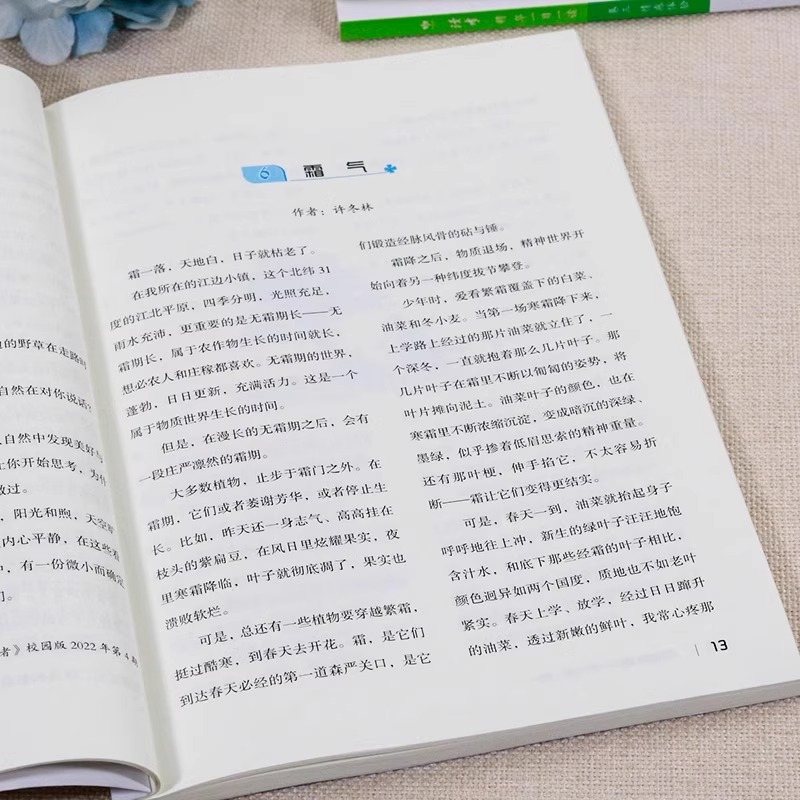 卷三 情感体验
的野草在走路时
自然在对你说话?
自然中发现美好与
让你开始思考，为什
过。
，阳光和煦，天空
内心平静，在这些看
中，有一份微小而确定
们。
者》校园版 2022 年第 4 期
6 霜 气
作者：许冬林
霜一落，天地白，日子就枯老了。
在我所在的江边小镇，这个北纬 31
度的江北平原，四季分明，光照充足，
雨水充沛，更重要的是无霜期长——无
霜期长，属于农作物生长的时间就长，
想必农人和庄稼都喜欢。无霜期的世界，
蓬勃，日日更新，充满活力。这是一个
属于物质世界生长的时间。
但是，在漫长的无霜期之后，会有
一段庄严凛然的霜期。
大多数植物，止步于霜门之外。在
霜期，它们或者萎谢芳华，或者停止生
长。比如，昨天还一身志气、高高挂在
枝头的紫扁豆，在风日里炫耀果实，夜
里寒霜降临，叶子就彻底凋了，果实也
溃败软烂。
可是，总还有一些植物要穿越繁霜，
挺过酷寒，到春天去开花。霜，是它们
到达春天必经的第一道森严关口，是它
们锻造经脉风骨的砧与锤。
霜降之后，物质退场，精神世界开
始向着另一种纬度拔节攀登。
少年时，爱看繁霜覆盖下的白菜、
油菜和冬小麦。当第一场寒霜降下来，
上学路上经过的那片油菜就立住了，一
个深冬，一直就抱着那么几片叶子。那
几片叶子在霜里不断以匍匐的姿势，将
叶片摊向泥土。油菜叶子的颜色，也在
寒霜里不断浓缩沉淀，变成暗沉的深绿、
墨绿，似乎掺着低眉思索的精神重量。
还有那叶梗，伸手掐它，不太容易折
断——霜让它们变得更结实。
可是，春天一到，油菜就抬起身子
呼呼地往上冲，新生的绿叶子汪汪地饱
含汁水，和底下那些经霜的叶子相比，
颜色迥异如两个国度，质地也不如老叶
紧实。春天上学、放学，经过日日蹿升
的油菜，透过新嫩的鲜叶，我常心疼那
13